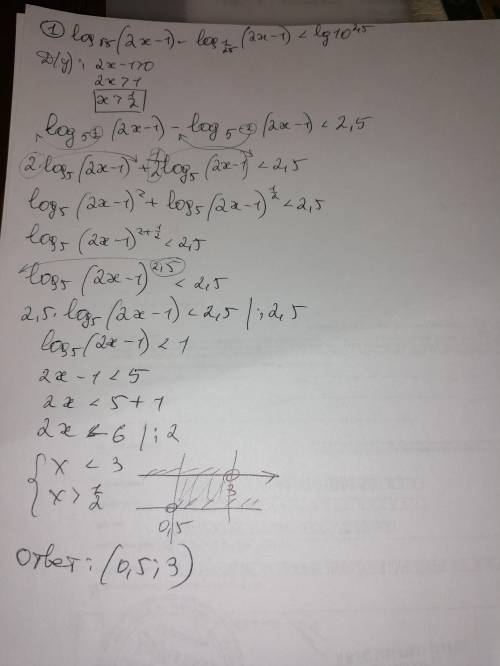 ① log√5 (2x-1) - log1/25 (2x-1) < lg10^2,5
D(y): 2x-1>0
2x>1
x > 1/2
log5^1/2 (2x-1) - log5^-2 (2x-1) < 2,5
2·log5 (2x-1) + 1/2 log5 (2x-1) < 2,5
log5 (2x-1)^2 + log5 (2x-1)^1/2 < 2,5
log5 (2x-1)^2+1/2 < 2,5
log5 (2x-1)^2,5 < 2,5
2,5·log5 (2x-1) < 2,5 |:2,5
log5 (2x-1) < 1
2x-1 < 5
2x < 5+1
2x < 6 |:2
{ x < 3
x > 1/2
3
0,5
Ответ: (0,5; 3)